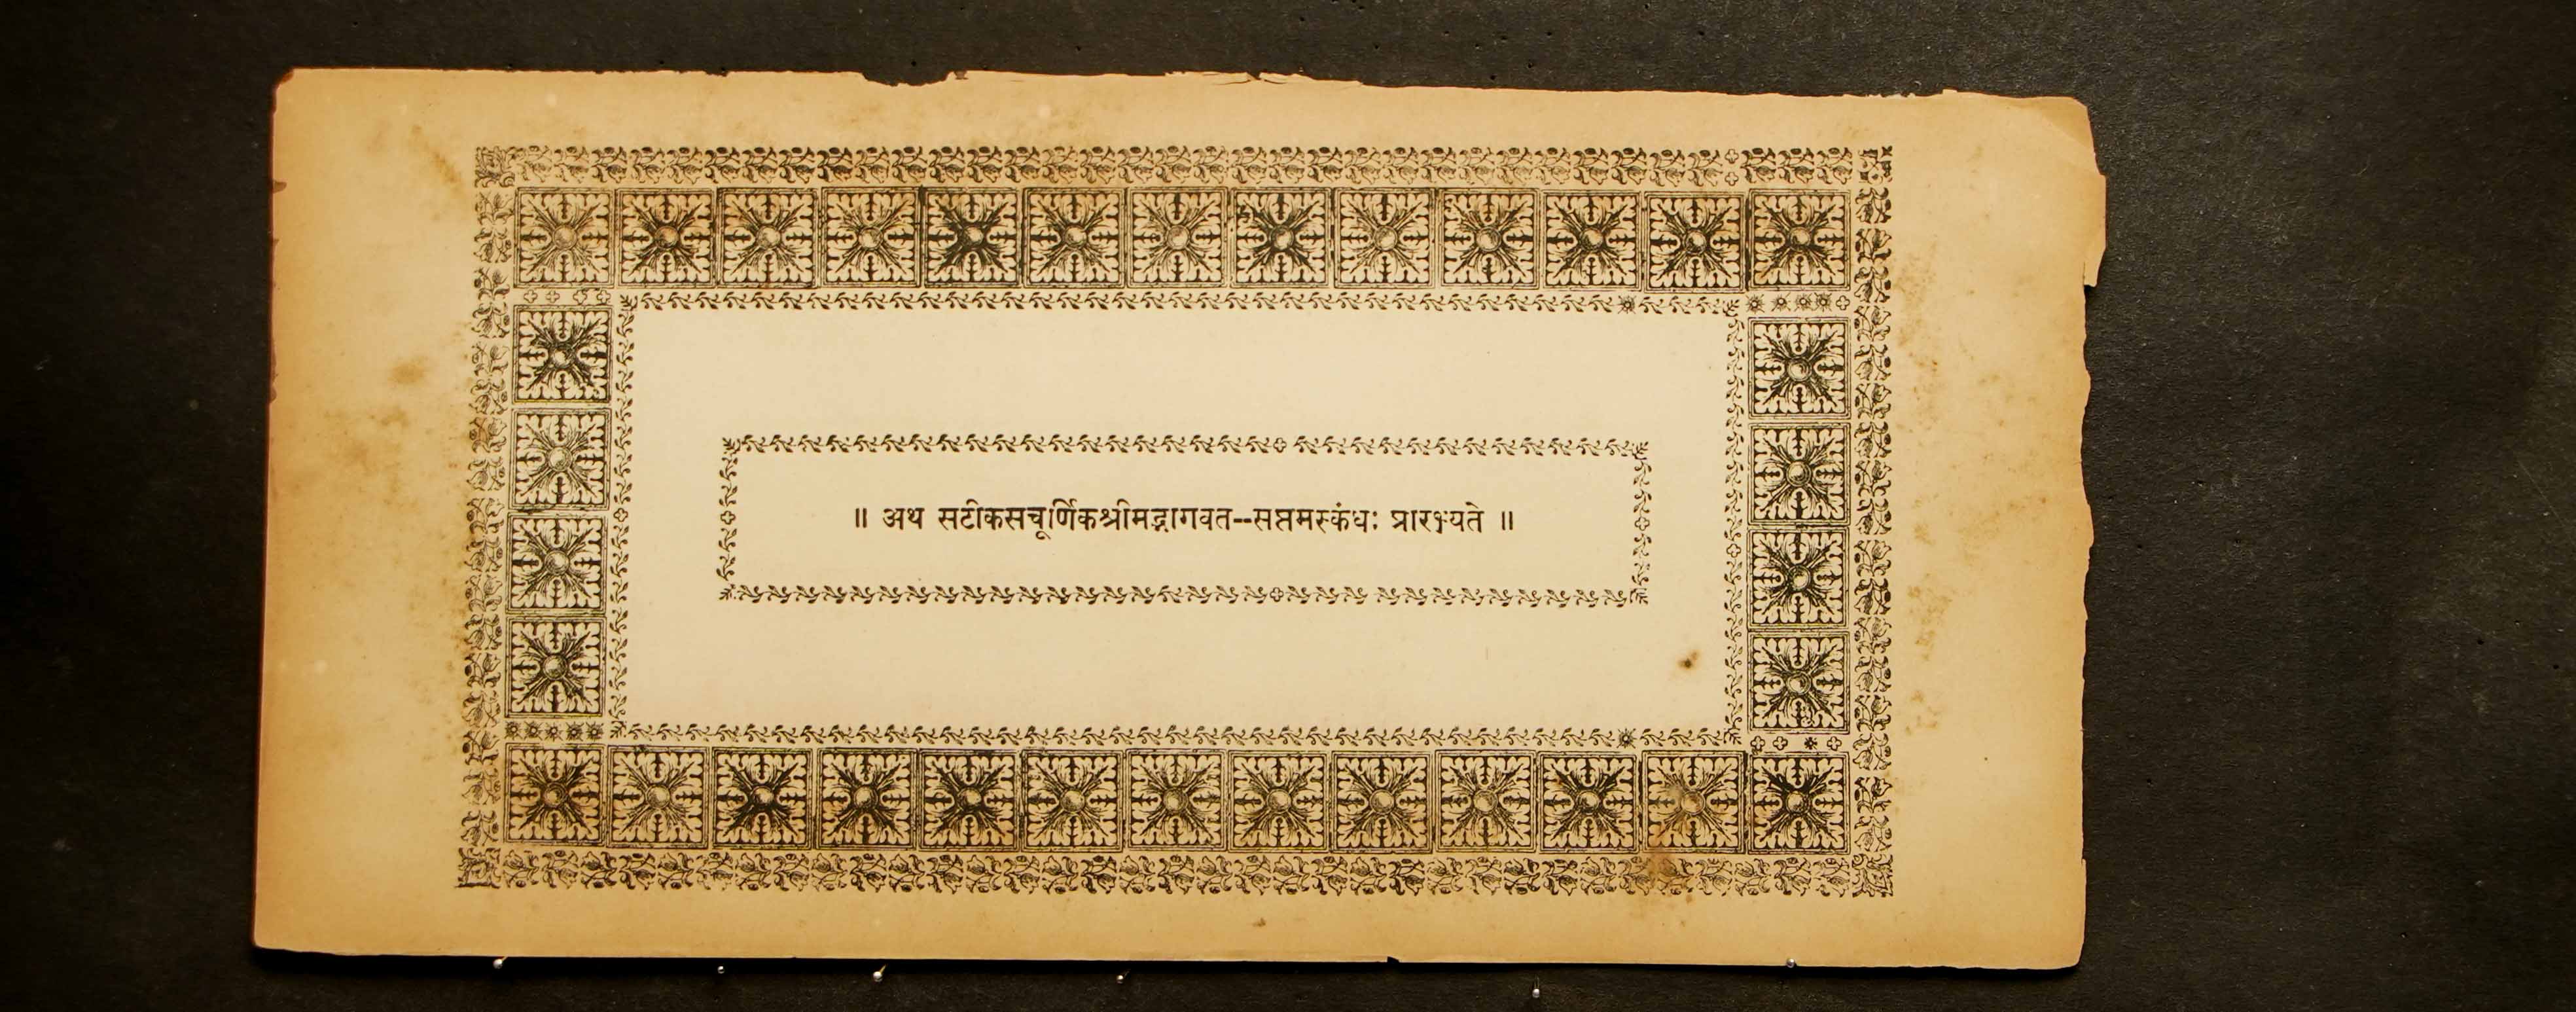 ॥ अथ सटीकसचूर्णिकश्रीमद्भागवत--सप्तमस्कंधः प्रारभ्यते ॥